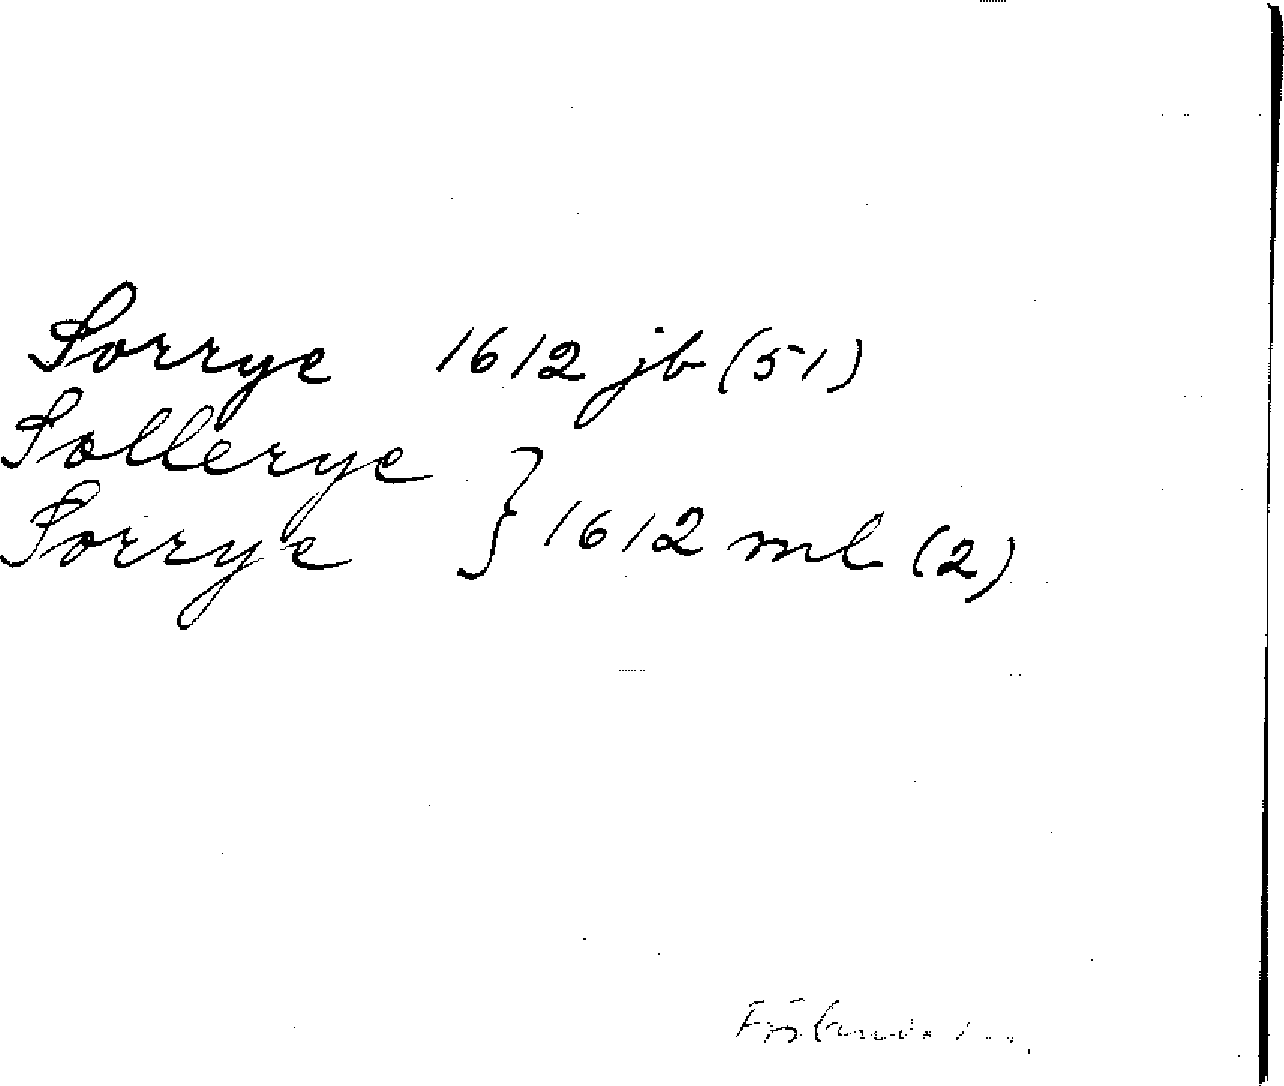 Sorrye 1612 jb (51)
Sollerye
Sorrye } 1612 ml (2)